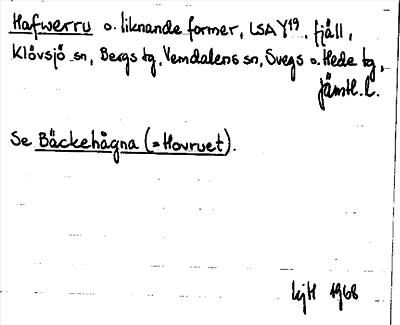 Hafwerru o. liknande former, LSA Y19, fjäll,
Klövsjö sn, Bergs tg, Vemdalens sn, Svegs o. Hede tg,
Jämtl. l.
Se Bäckehågna (=Hovruet).
1968